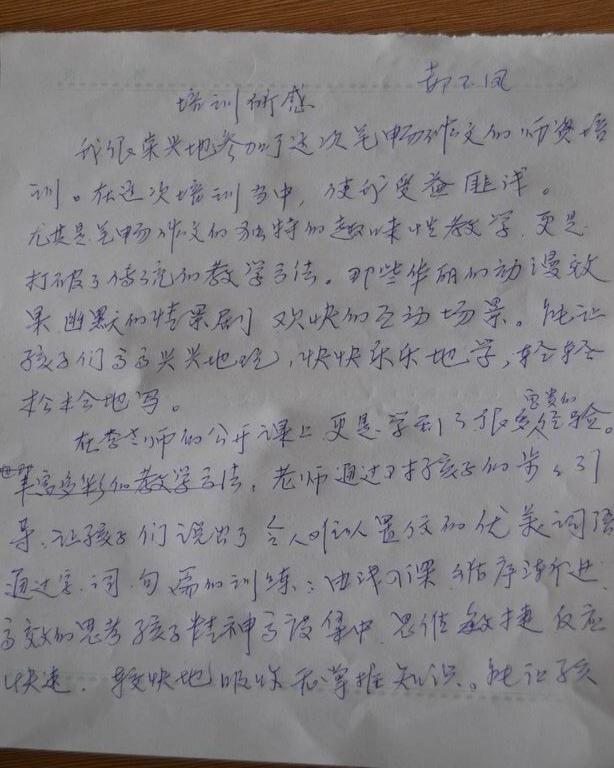 郝不凤
培训所感
我很荣兴地参加了这次笔畅作文的师资培
训。在这次培训当中，使我受益匪浅。
尤其是笔畅作文的独特的趣味性教学，更是
打破了传统的教学方法。那些华丽的动漫效
果 幽默的情景剧 欢快的互动场景。能让
孩子们高高兴兴地玩，快快乐乐地学，轻轻
松松地写。
在李老师的公开课上 更是学到了很多宝贵的经验。
丰富多彩的教学方法，老师通过对孩子的步步引
导、让孩子们说出了令人难以置信的优美词语
通过字、词、句、篇的训练；由浅入深、循序渐进
高效的思考 孩子精神高度集中 思维敏捷 反应
快速、较快地吸收和掌握知识。能让孩